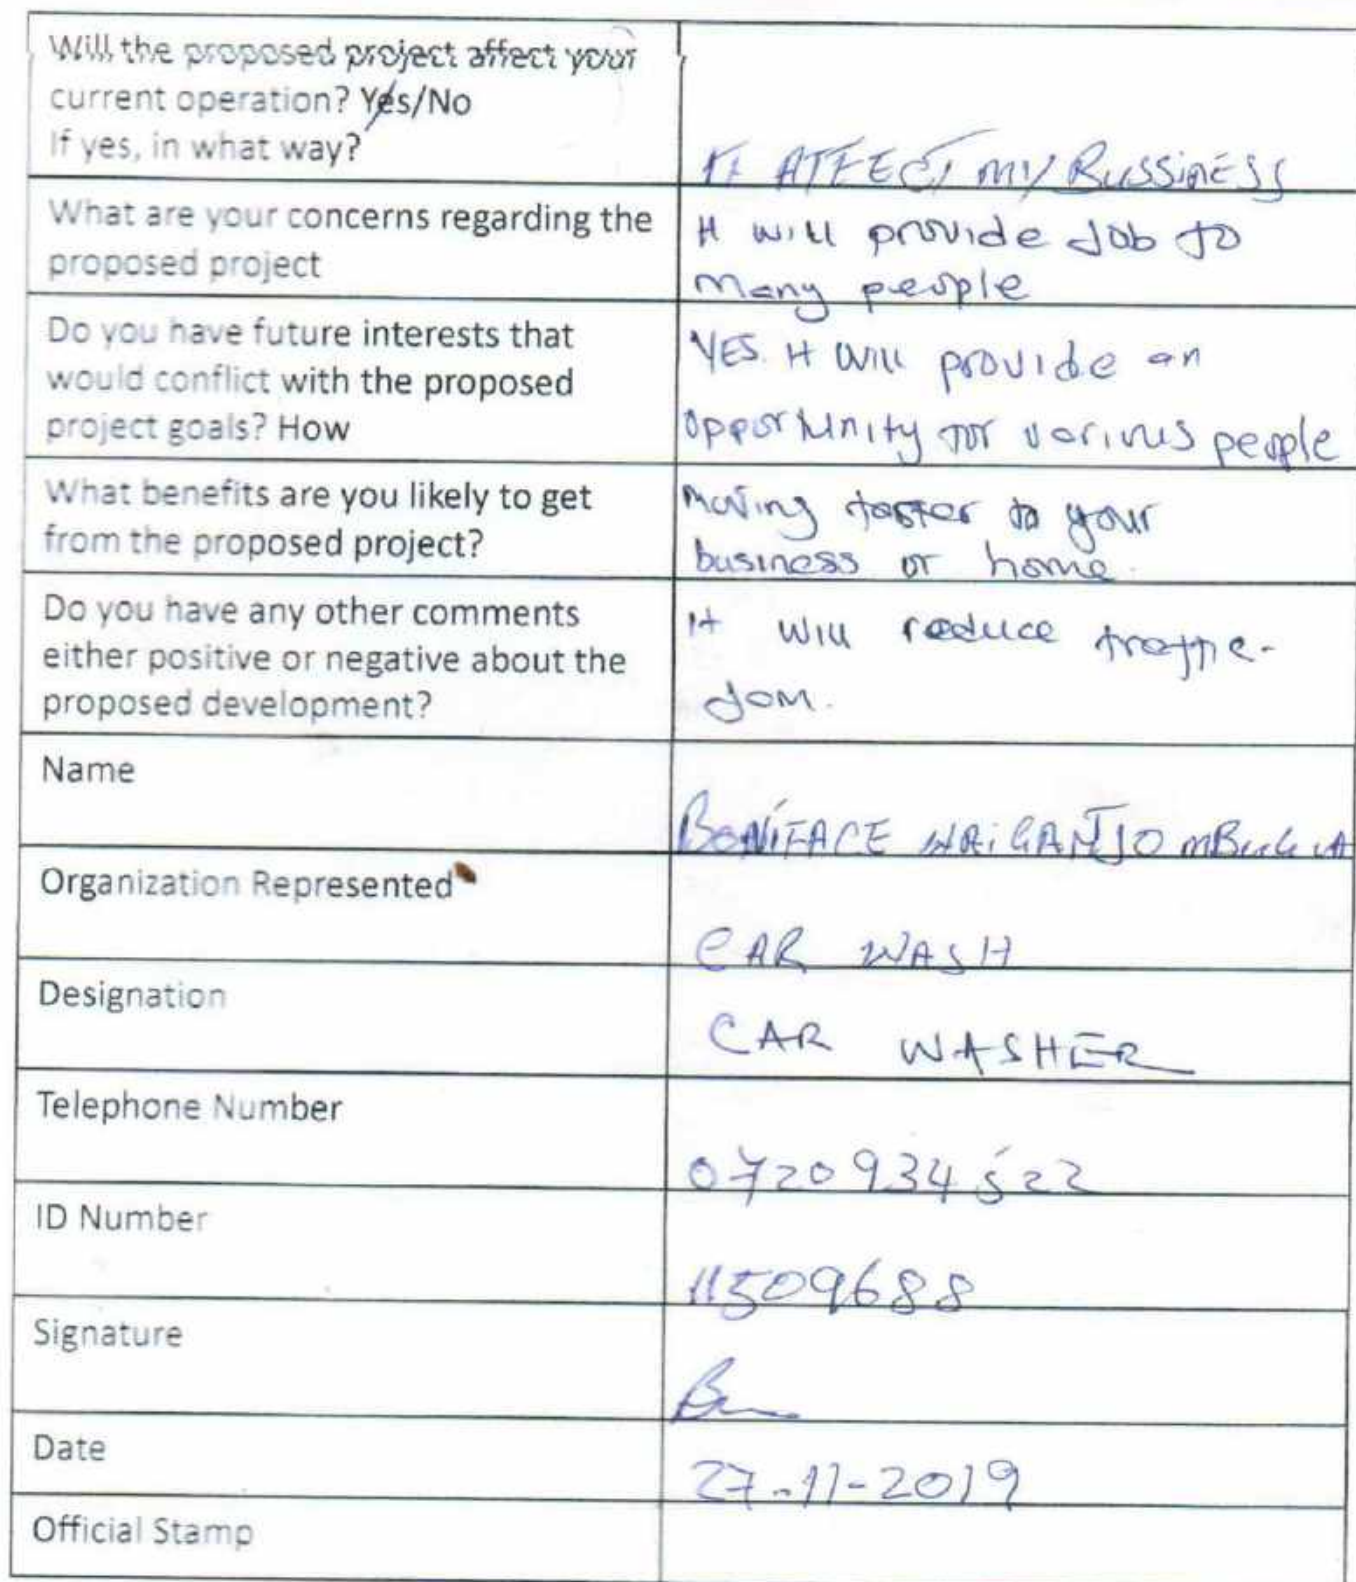 Will the proposed project affect your
current operation? Yes/No
If yes, in what way?
IT AFFECT MY BUSSINESS
What are your concerns regarding the
proposed project
It will provide Job to
many people
Do you have future interests that
would conflict with the proposed
project goals? How
YES. It will provide an
opportunity for various people
What benefits are you likely to get
from the proposed project?
Moving faster to your
business or home.
Do you have any other comments
either positive or negative about the
proposed development?
It will reduce traffic-
Jam.
Name
BONIFACE WAIGANJO MBUGUA
Organization Represented
CAR WASH
Designation
CAR WASHER
Telephone Number
0720934522
ID Number
11509688
Signature
Date
27-11-2019
Official Stamp